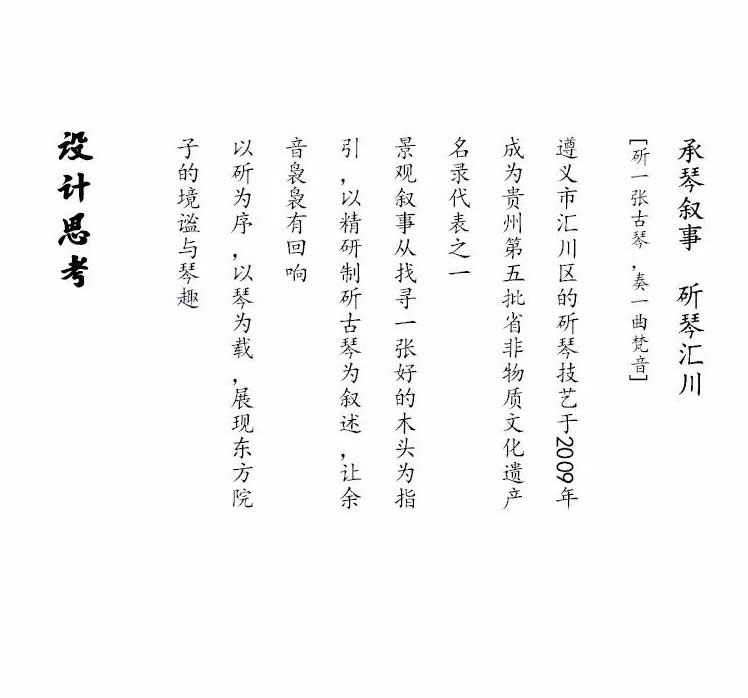 承琴叙事　斫琴汇川
[斫一张古琴,奏一曲梵音]
遵义市汇川区的斫琴技艺于2009年
成为贵州第五批省非物质文化遗产
名录代表之一
景观叙事从找寻一张好的木头为指
引,以精研制斫古琴为叙述,让余
音袅袅有回响
以斫为序,以琴为载,展现东方院
子的境谧与琴趣
设计思考